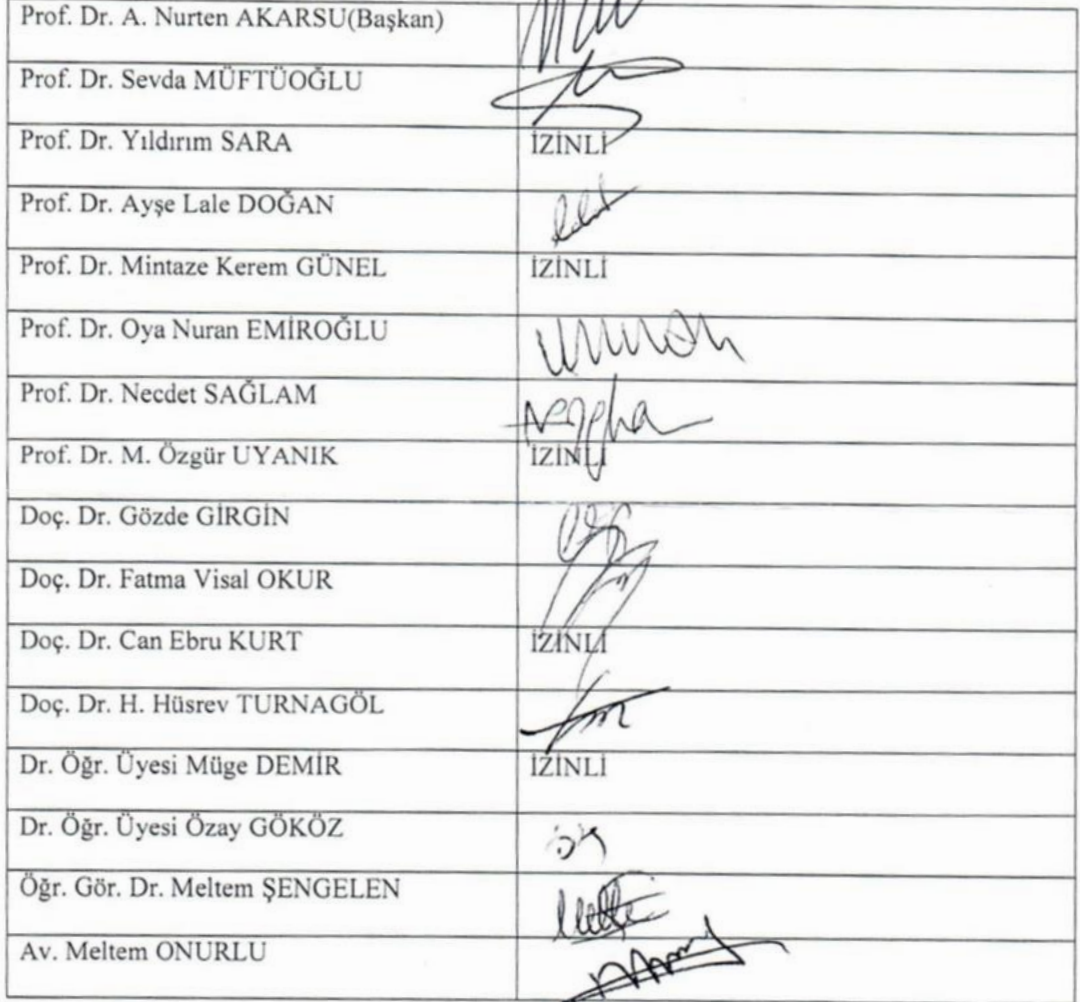 Prof. Dr. A. Nurten AKARSU(Başkan)
Prof. Dr. Sevda MÜFTÜOĞLU
Prof. Dr. Yıldırım SARA İZİNLİ
Prof. Dr. Ayşe Lale DOĞAN
Prof. Dr. Mintaze Kerem GÜNEL İZİNLİ
Prof. Dr. Oya Nuran EMİROĞLU
Prof. Dr. Necdet SAĞLAM
Prof. Dr. M. Özgür UYANIK İZİNLİ
Doç. Dr. Gözde GİRGİN
Doç. Dr. Fatma Visal OKUR
Doç. Dr. Can Ebru KURT İZİNLİ
Doç. Dr. H. Hüsrev TURNAGÖL
Dr. Öğr. Üyesi Müge DEMİR İZİNLİ
Dr. Öğr. Üyesi Özay GÖKÖZ
Öğr. Gör. Dr. Meltem ŞENGELEN
Av. Meltem ONURLU